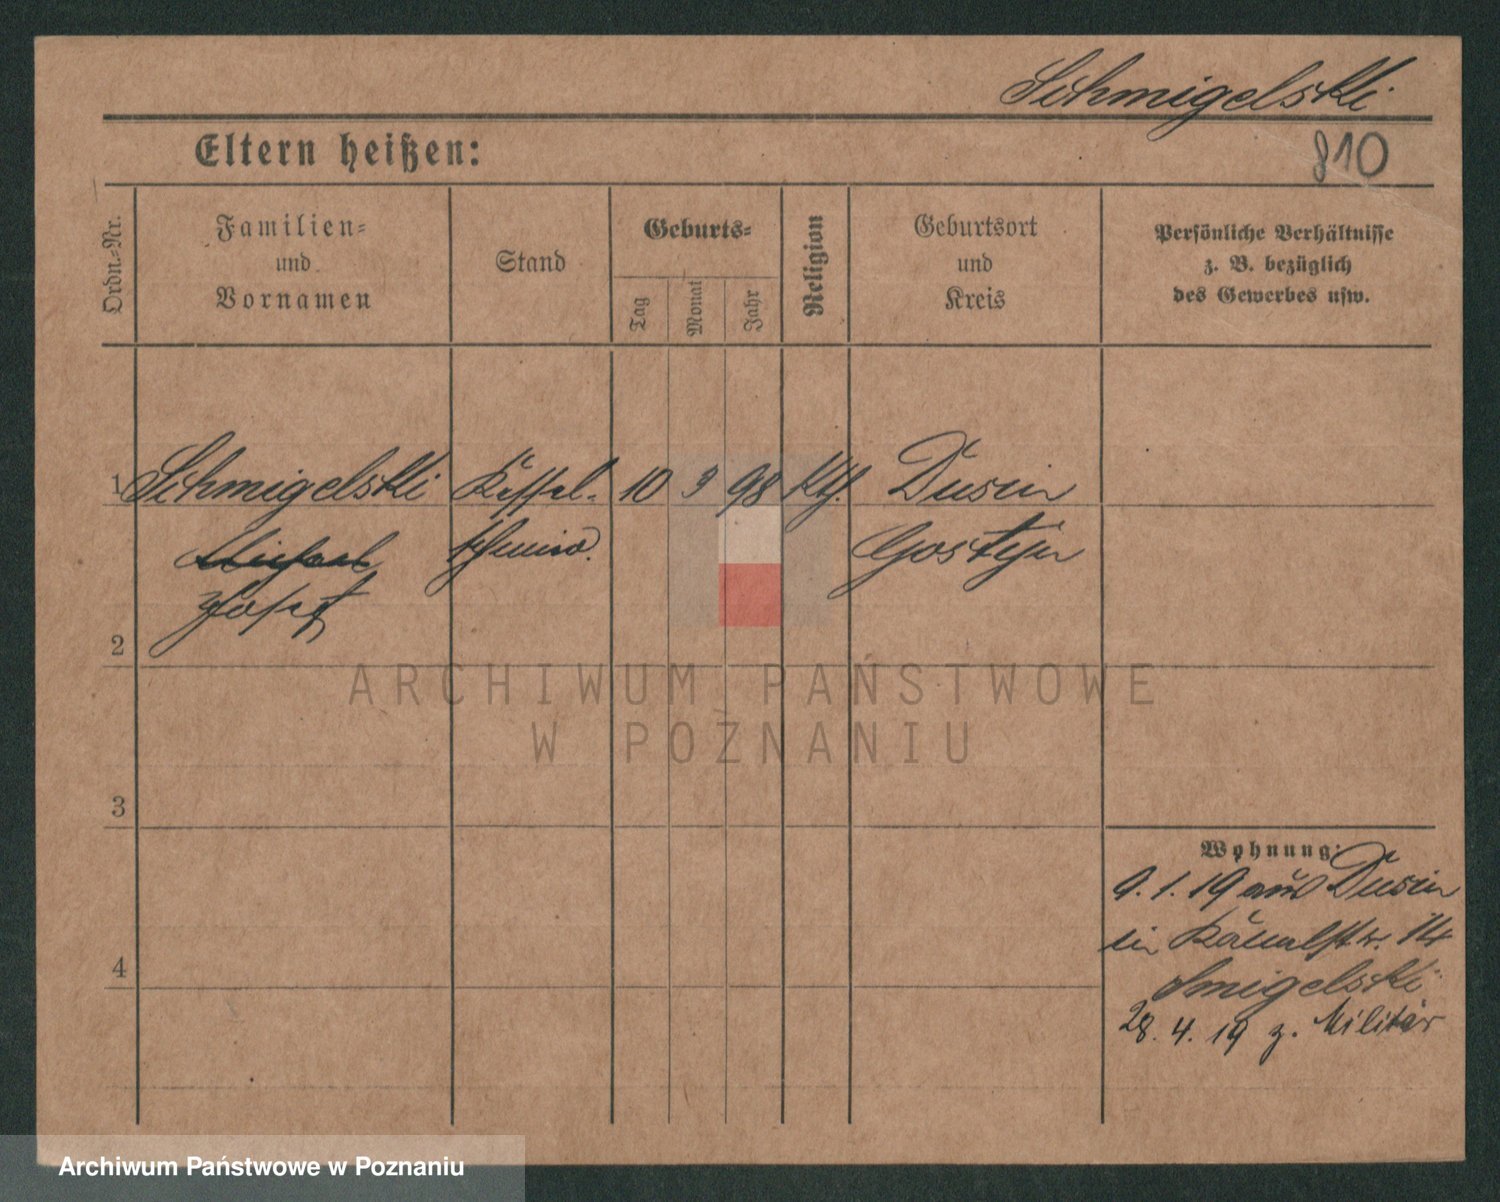 Schmigelski
810
Eltern heißen:
Ordn.-Nr.
Familien-
und
Vornamen
Stand
Geburts-
Tag
Monat
Jahr
Religion
Geburtsort
und
Kreis
Persönliche Verhältnisse
z. B. bezüglich
des Gewerbes usw.
1 Schmigelski Kessel- 10 3 98 Kth. Dusin
Michael schmied. Gostyn
Josef
2
3
4
Wohnung:
9. 1. 19 aus Dusin
in Kanalstr. 14
Smigelski
28. 4. 19 z. Militär
ARCHIWUM PAŃSTWOWE
W POZNANIU
Archiwum Państwowe w Poznaniu